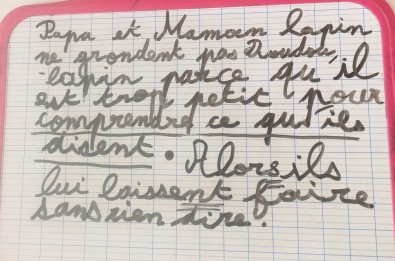 Papa et Maman lapin
ne grondent pas Doudou
-lapin parce qu'il
est trop petit pour
comprendre ce qu'ils
disent. Alors ils
lui laissent faire
sans rien dire.